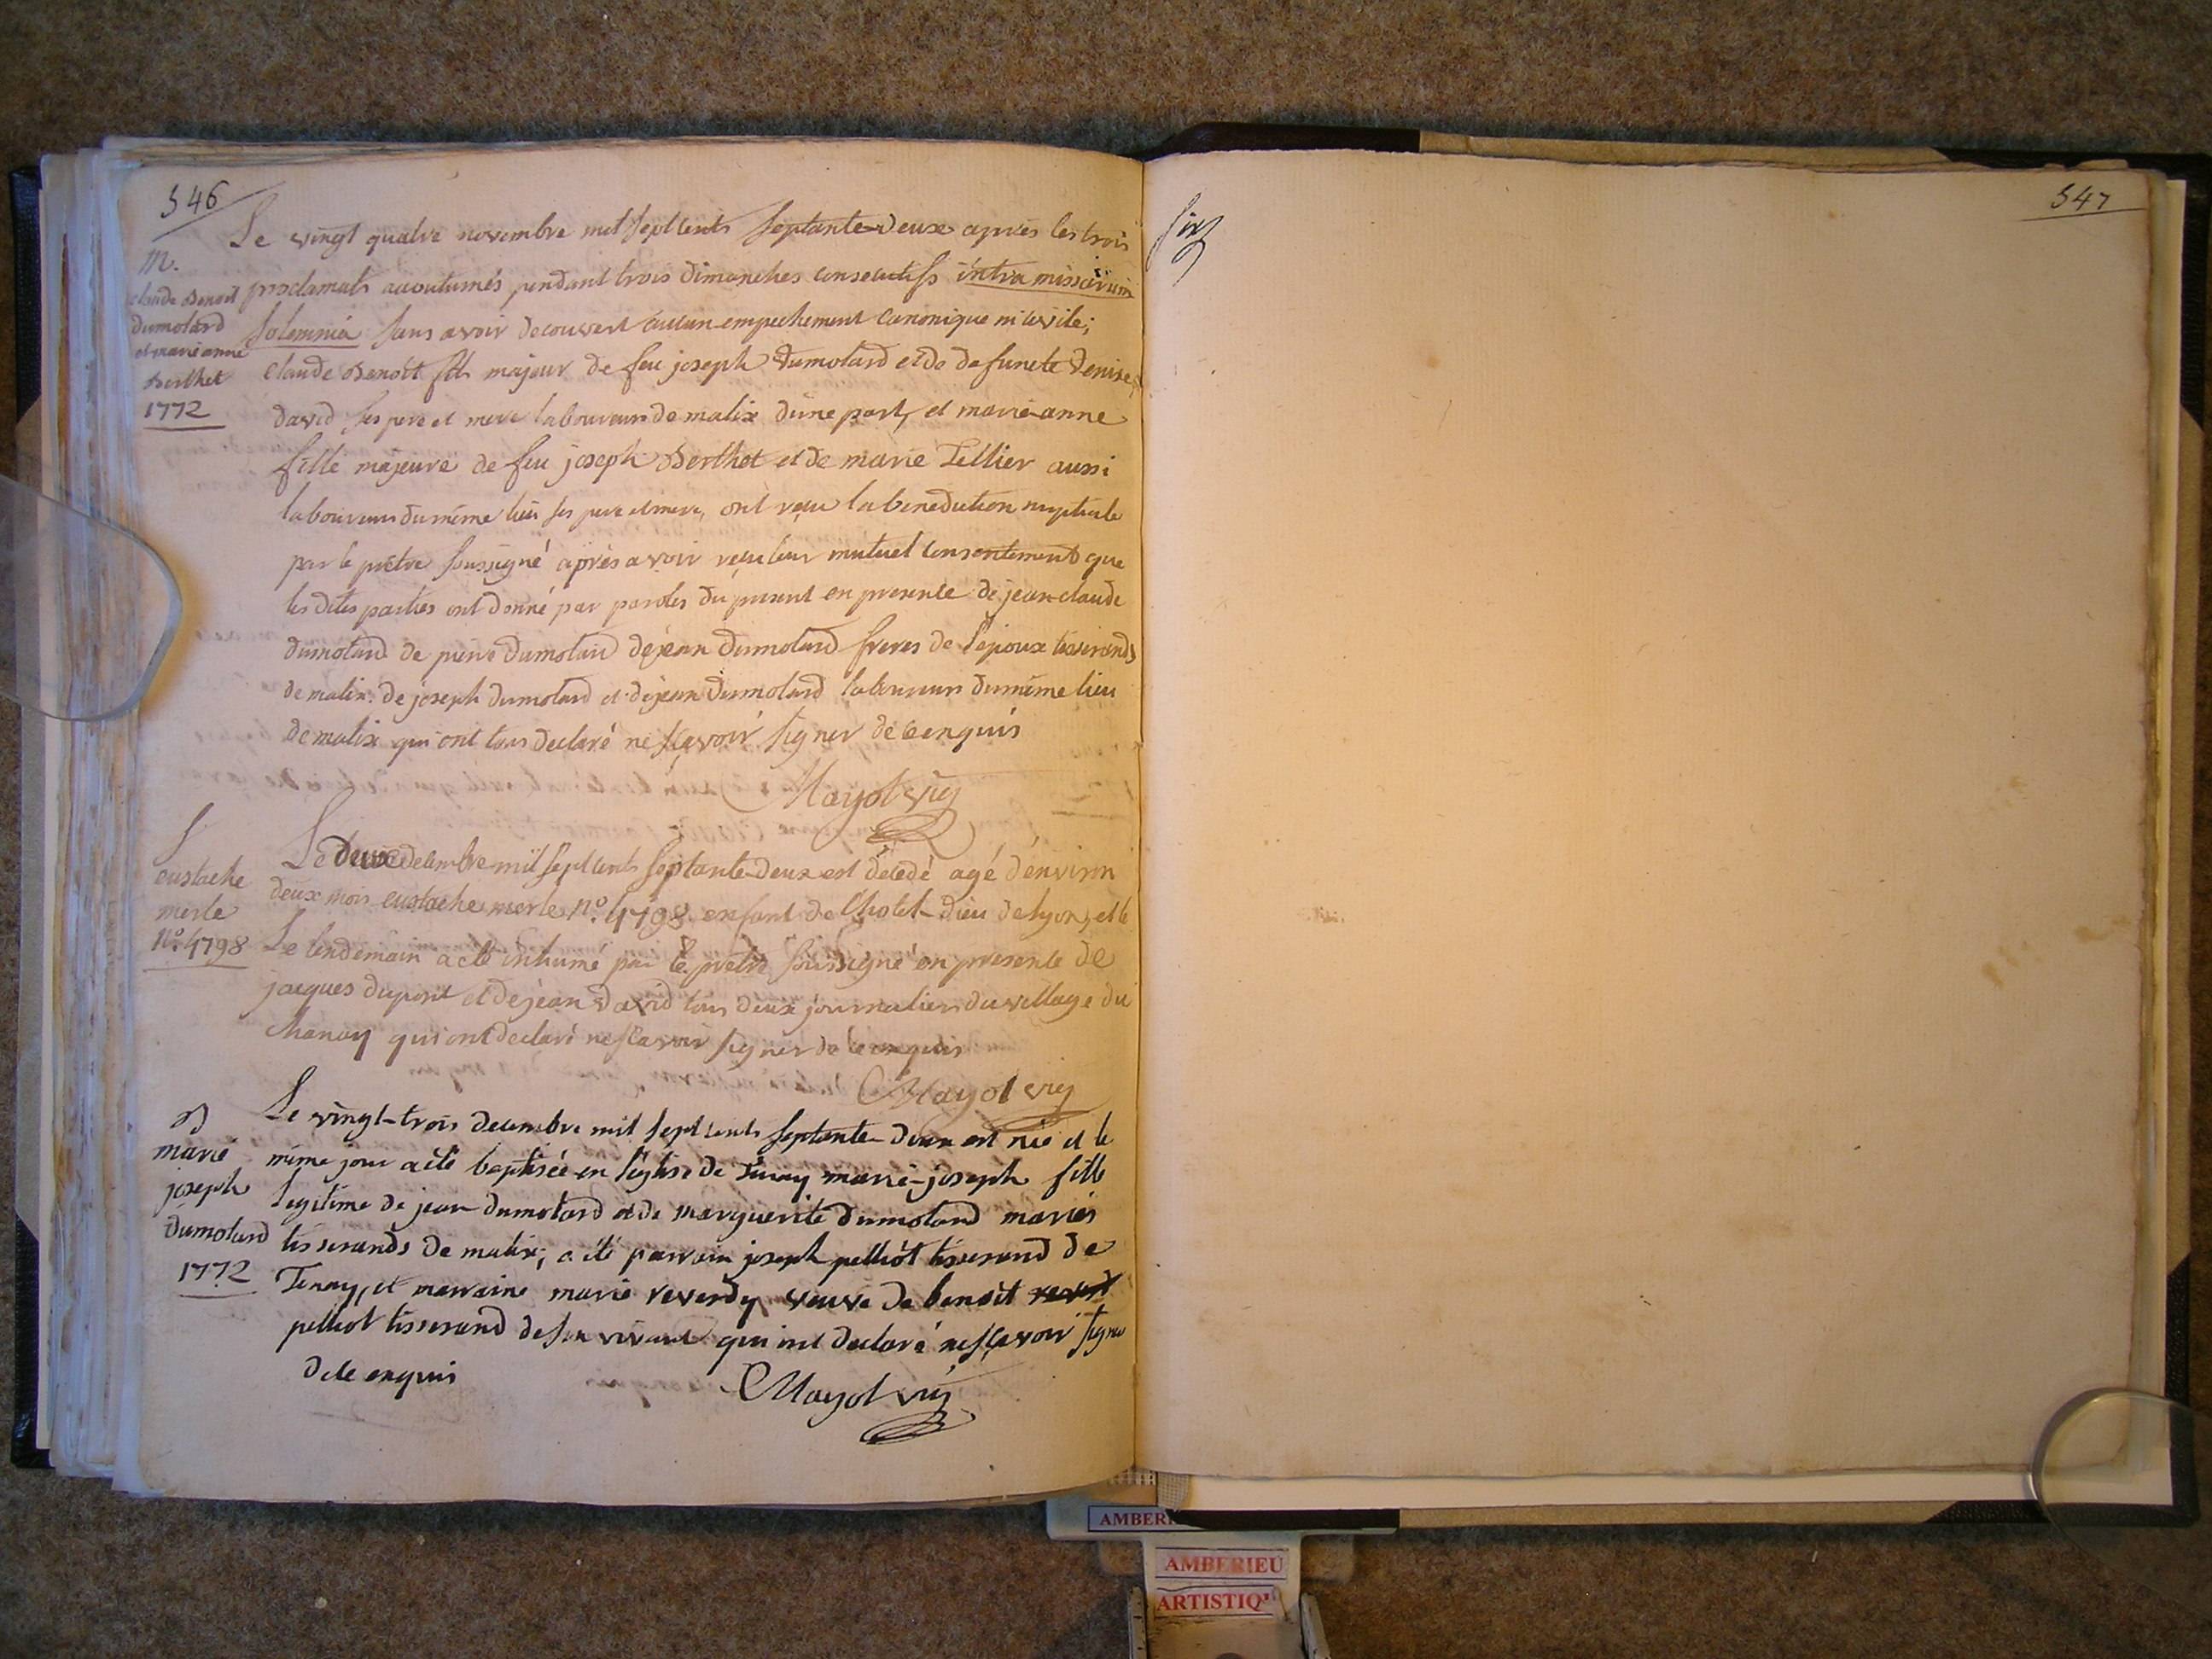 546
Le vingt quatre novembre mil sept cents septante-deux après les trois
m.
proclamats accoutumés pendant trois dimanches consecutifs intra missarum
claude Benoit
dumolard
solemnia sans avoir decouvert aucun empechement canonique ni civile;
et marie anne
Berthet
claude Benoît fils majeur de feu joseph Dumolard et de defuncte Denise
1772
david ses pere et mere laboureurs de malix d'une part, et marie-anne
fille majeure de feu joseph Berthet et de marie Tellier aussi
laboureurs du même lieu ses pere et mere, ont reçu la benediction nuptiale
par le prêtre soussigné après avoir reçu leur mutuel consentement que
les dites parties ont donné par paroles du present en presence de jean-claude
dumolard de pierre dumolard de jean dumolard freres de l'epoux tisserands
de malix. de joseph dumolard et de jean dumolard laboureurs du même lieu
de malix qui ont tous declaré ne sçavoir signer de ce enquis
Mayot vic
S
eustache
merle
N.º 4798
Le deux decembre mil sept cents septante-deux est decedé agé d'environ
deux mois eustache merle N.º 4798 enfant de l'hotel-dieu de lyon, et le
Le lendemain a eté inhumé par le prêtre soussigné en presence de
jacques dupont et de jean david tous deux journaliers du village du
Chanay qui ont declaré ne sçavoir signer de ce enquis
Mayot vic
B
marie
joseph
dumolard
1772
Le vingt-trois decembre mil sept cents septante-deux est née et le
même jour a eté baptisée en l'eglise de Tenay marie-joseph fille
legitime de jean dumolard et de marguerite dumolard mariés
tisserands de malix; a eté parrain joseph pelliot tisserand de
Tenay, et marraine marie reverdy veuve de benoit
pelliot tisserand de son vivant qui ont declaré ne sçavoir signer
de ce enquis
Mayot vic
547
fin
AMBERIEU
ARTISTIQ